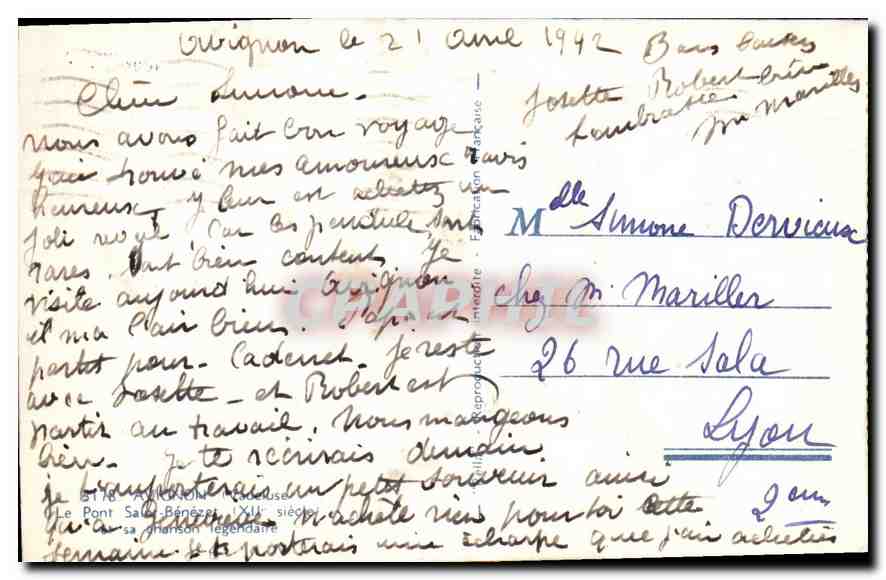 Avignon le 21 Avril 1942
Chère Simone.
nous avons fait bon voyage
j'ai trouvé mes amoureux ravis
heureux, y leur est achetez un
joli réveil, car les pendules sont
rares. sont bien contents. Je
visite aujourd'hui Avignon
et ma l'air bien. Papi est
partit pour. Cadenet. je reste
avec Josette. et Robert est
partit au travail. Nous mangeons
bien. Je te réécrirais demain
je t'emporterais un petit souvenir ainsi
qu'a Geneviève. N'achète rien pour toi cette
semaine je te porterais une écharpe que j'ai achetée
Bons baisers
Josette Robert
t'embrasse
Mariller
Mdlle Simone Dervieux
chez Mr Mariller
26 rue Sala
Lyon
2eme
Reproduction interdite - Fabrication Française
3178 AVIGNON Vaucluse
Le Pont Saint-Bénézet (XIIe siècle)
et sa chanson légendaire
CPAPHIL